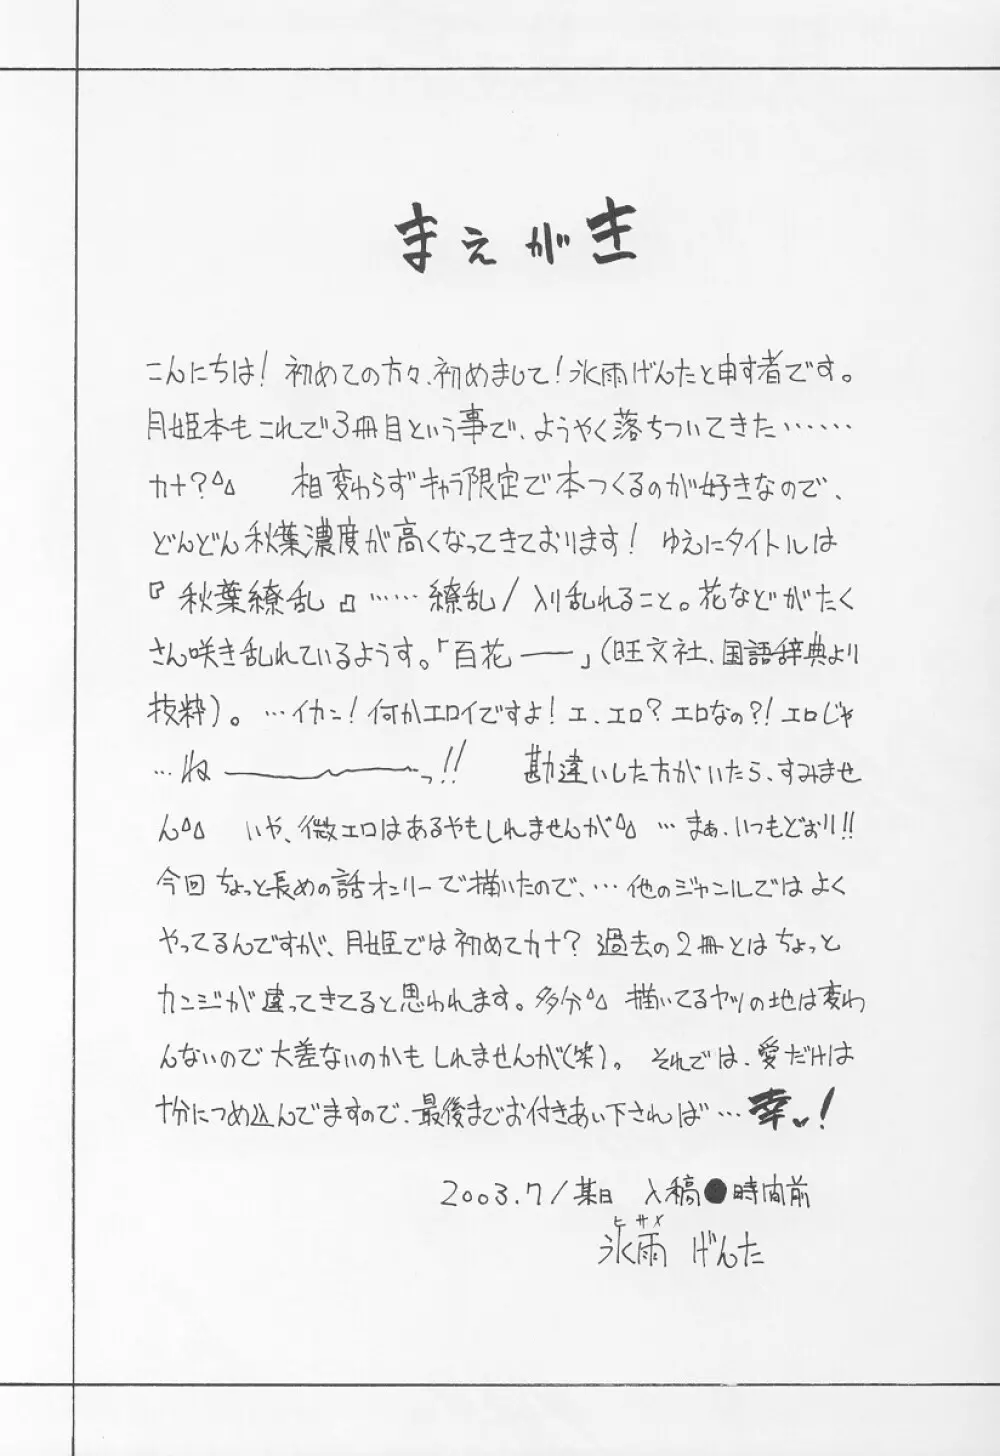 まえがき
こんにちは! 初めての方々、初めまして! 氷雨げんたと申す者です。
月姫本もこれで3冊目という事で、ようやく落ちついてきた……
カナ?^△ 相変わらずキャラ限定で本つくるのが好きなので、
どんどん秋葉濃度が高くなってきております! ゆえにタイトルは
『秋葉繚乱』……繚乱/入り乱れること。花などがたく
さん咲き乱れているようす。「百花──」(旺文社、国語辞典より
抜粋)。…イカン!何かエロイですよ!エ、エロ?エロなの?!エロじゃ
…ね──────っ!! 勘違いした方がいたら、すみませ
ん^△ いや、微エロはあるやもしれませんが^△ …まぁ、いつもどおり!!
今回ちょっと長めの話オンリーで描いたので、…他のジャンルではよく
やってるんですが、月姫では初めてカナ?過去の2冊とはちょっと
カンジが違ってきてると思われます。多分^△ 描いてるヤツの地は変わ
んないので大差ないのかもしれませんが(笑)。それでは、愛だけは
十分につめ込んでますので、最後までお付きあい下されば…幸い!
2003.7/某日 入稿●時間前
ヒサメ
氷雨 げんた